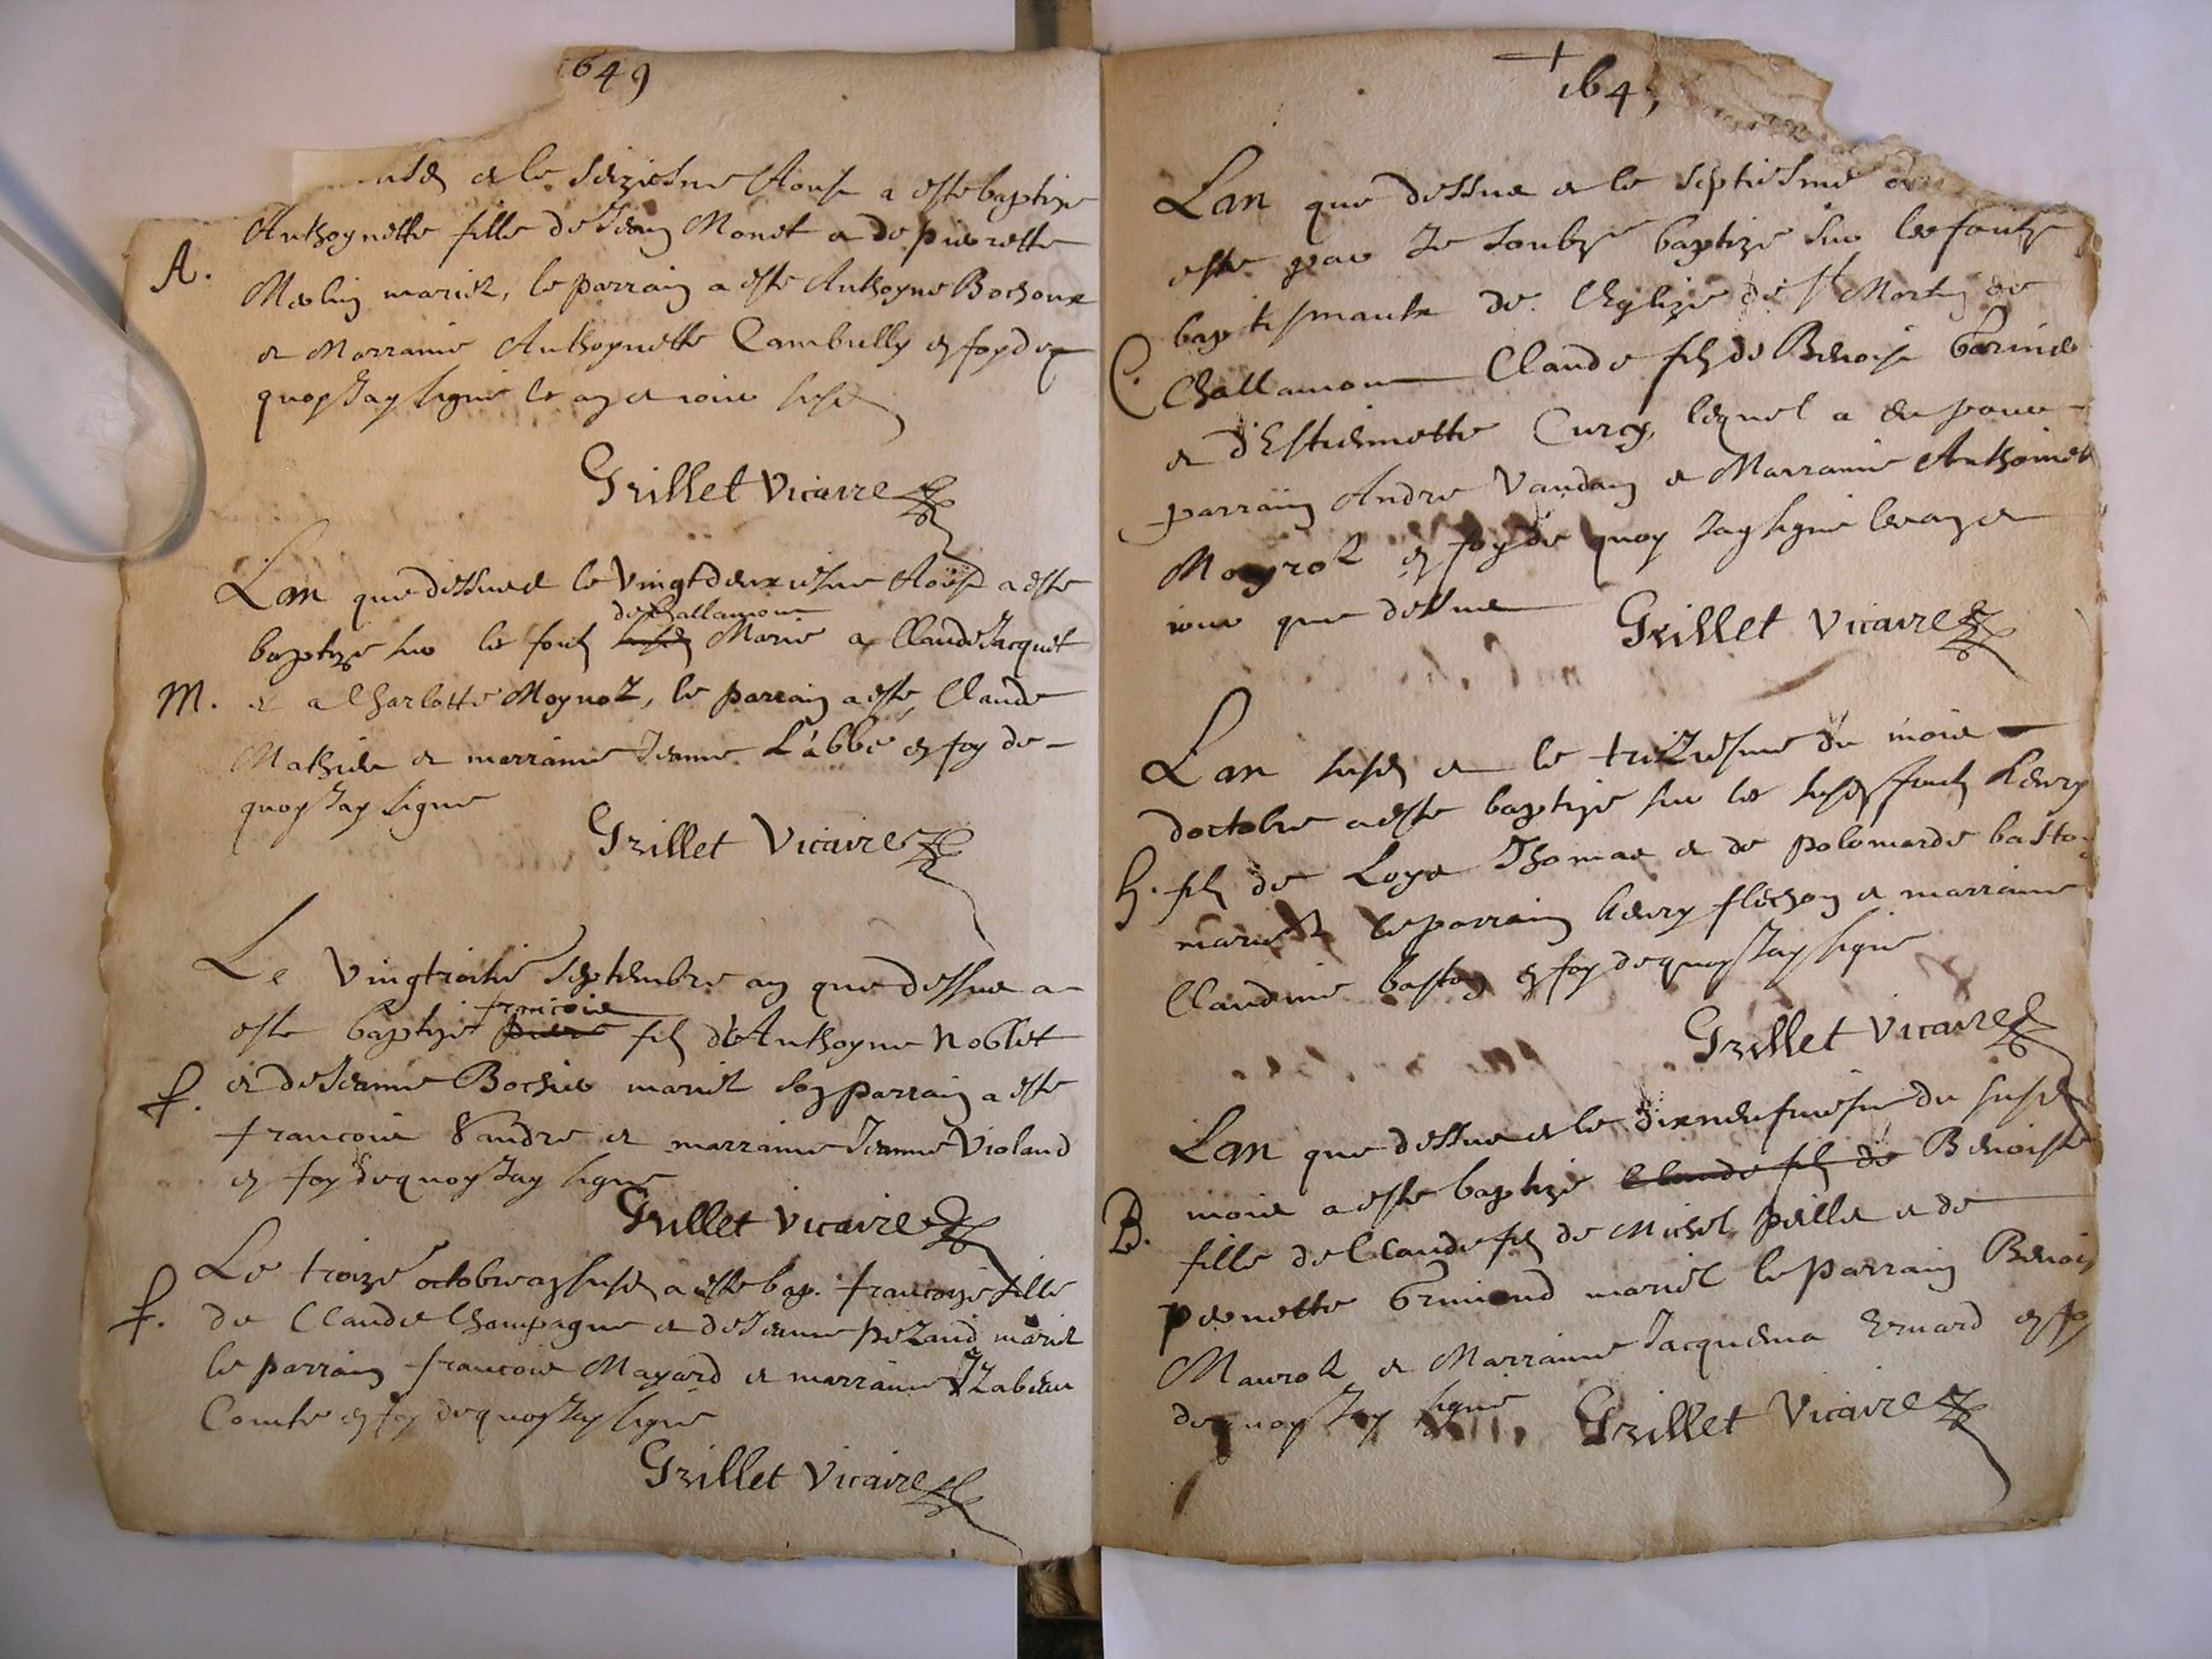 1649
et le seiziesme Aoust a esté baptizé
Anthoynette fille de Jean Monet et de pierrette
A.
Merlin mariez, le parrain a esté Anthoyne Bochoux
et Marraine Anthoynette Cambully en foy de
quoy J'ay signé le an et iour susd
Grillet Vicaire
Lan que dessus et le Vingt deuxiesme Aoust a esté
de Challamont
baptizé sur le font susd Marie a Claude Jacquet
M. et a Charlotte Moynoz, le parrain a esté Claude
Mathieu et marraine Jeanne L'abbé en foy de
quoy J'ay signé
Grillet Vicaire
Le Vingtroisie septembre an que dessus a
francois
esté baptizé pierre filz d'Anthoyne Noblet
f. et de Jeanne Bochié mariez son parrain a esté
francois Vandre et marraine Jeanne Violand
en foy de quoy J'ay signé
Grillet Vicaire
Le troizé octobre an susd a esté bap. francoize fille
f. de Claude Champagne et de Jeanne peZand mariez
le parrain francois Mayard et marraine YZabeau
Comte en foy de quoy J'ay signé
Grillet Vicaire
164
Lan que dessus et le septiesme
esté par Je soubz baptizé sur les fontz
baptismaulx de l'Eglize de St Martin de
C. Challamont Claude filz de Benoist
et d'Estiennette Curty, lequel a eu pour
parrain Andre Vandan et Marraine Anthoinet
Moyroz en foy de quoy J'ay signé les an et
iour que dessus
Grillet Vicaire
Lan susd et le treZiesme du mois
doctobre a esté baptizé sur les susd fontz henry
h. filz de Loys Thomas et de polomarde baston
mariez le parrain henry flechon et marraine
Claudine baston en foy de quoy J'ay signé
Grillet Vicaire
Lan que dessus et le dixneufuiesme du susd
mois a esté baptizé Claude filz de Benoiste
B.
fille de Claude filz de Michel pella et de
pernette mariez le parrain Benoist
Mauroz et Marraine Jacquema en foy
de quoy J'ay signé
Grillet Vicaire